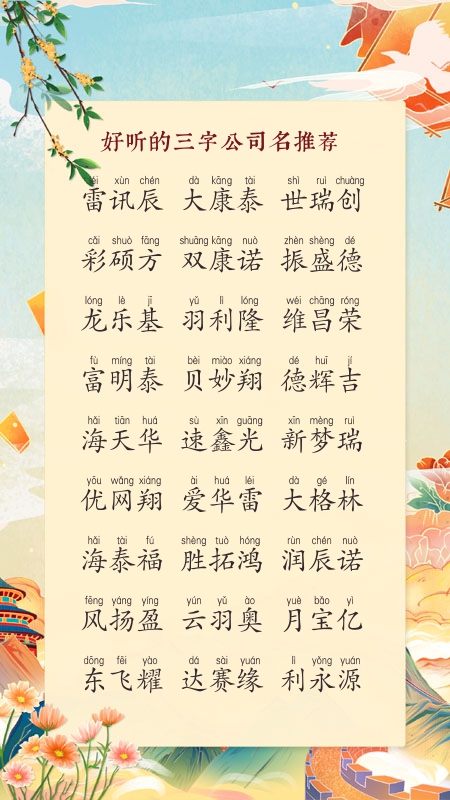 好听的三字公司名推荐
léi xùn chén dà kāng tài shì ruì chuàng
雷讯辰 大康泰 世瑞创
cǎi shuò fāng shuāng kāng nuò zhèn shèng dé
彩硕方 双康诺 振盛德
lóng lè jī yǔ lì lóng wéi chāng róng
龙乐基 羽利隆 维昌荣
fù míng tài bèi miào xiáng dé huī jí
富明泰 贝妙翔 德辉吉
hǎi tiān huá sù xīn guāng xīn mèng ruì
海天华 速鑫光 新梦瑞
yōu wǎng xiáng ài huá léi dà gé lín
优网翔 爱华雷 大格林
hǎi tài fú shèng tuò hóng rùn chén nuò
海泰福 胜拓鸿 润辰诺
fēng yáng yíng yún yǔ ào yuè bǎo yì
风扬盈 云羽奥 月宝亿
dōng fēi yào dá sài yuán lì yǒng yuán
东飞耀 达赛缘 利永源